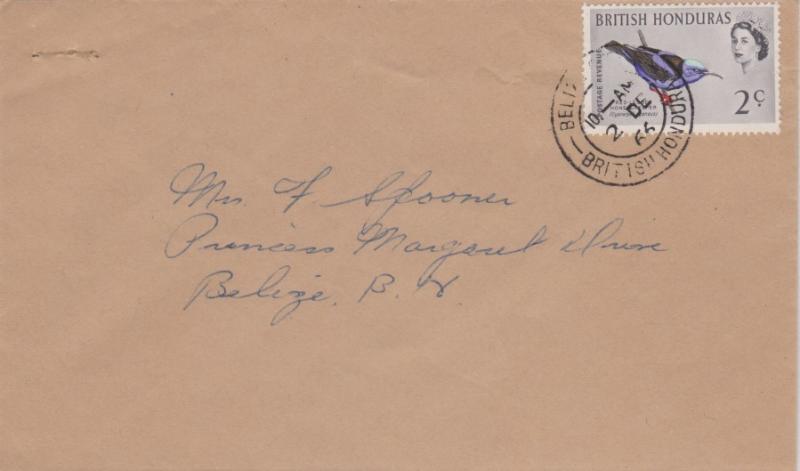 BRITISH HONDURAS
POSTAGE REVENUE
2c
BELIZ
10—AM
2 DE
66
BRITISH HONDURA
Mrs. F. Spooner
Princess Margaret Drive
Belize, B. H.